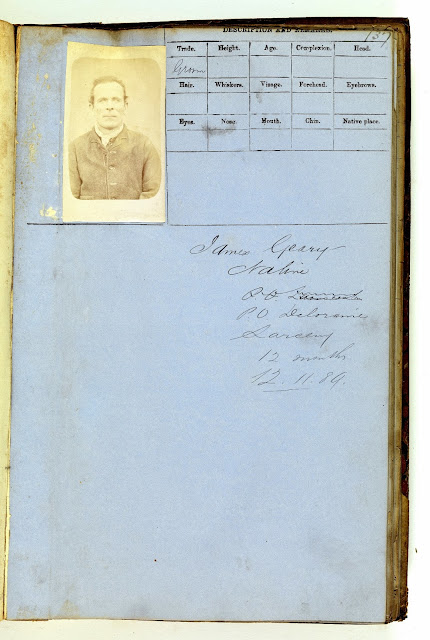 137
DESCRIPTION AND REMARKS
Trade. Height. Age. Complexion. Head.
Groom
Hair. Whiskers. Visage. Forehead. Eyebrows.
Eyes. Nose. Mouth. Chin. Native place.
James Geary
Native
P.O.
P.O Deloraine
Larceny
12 months
12.11.89.